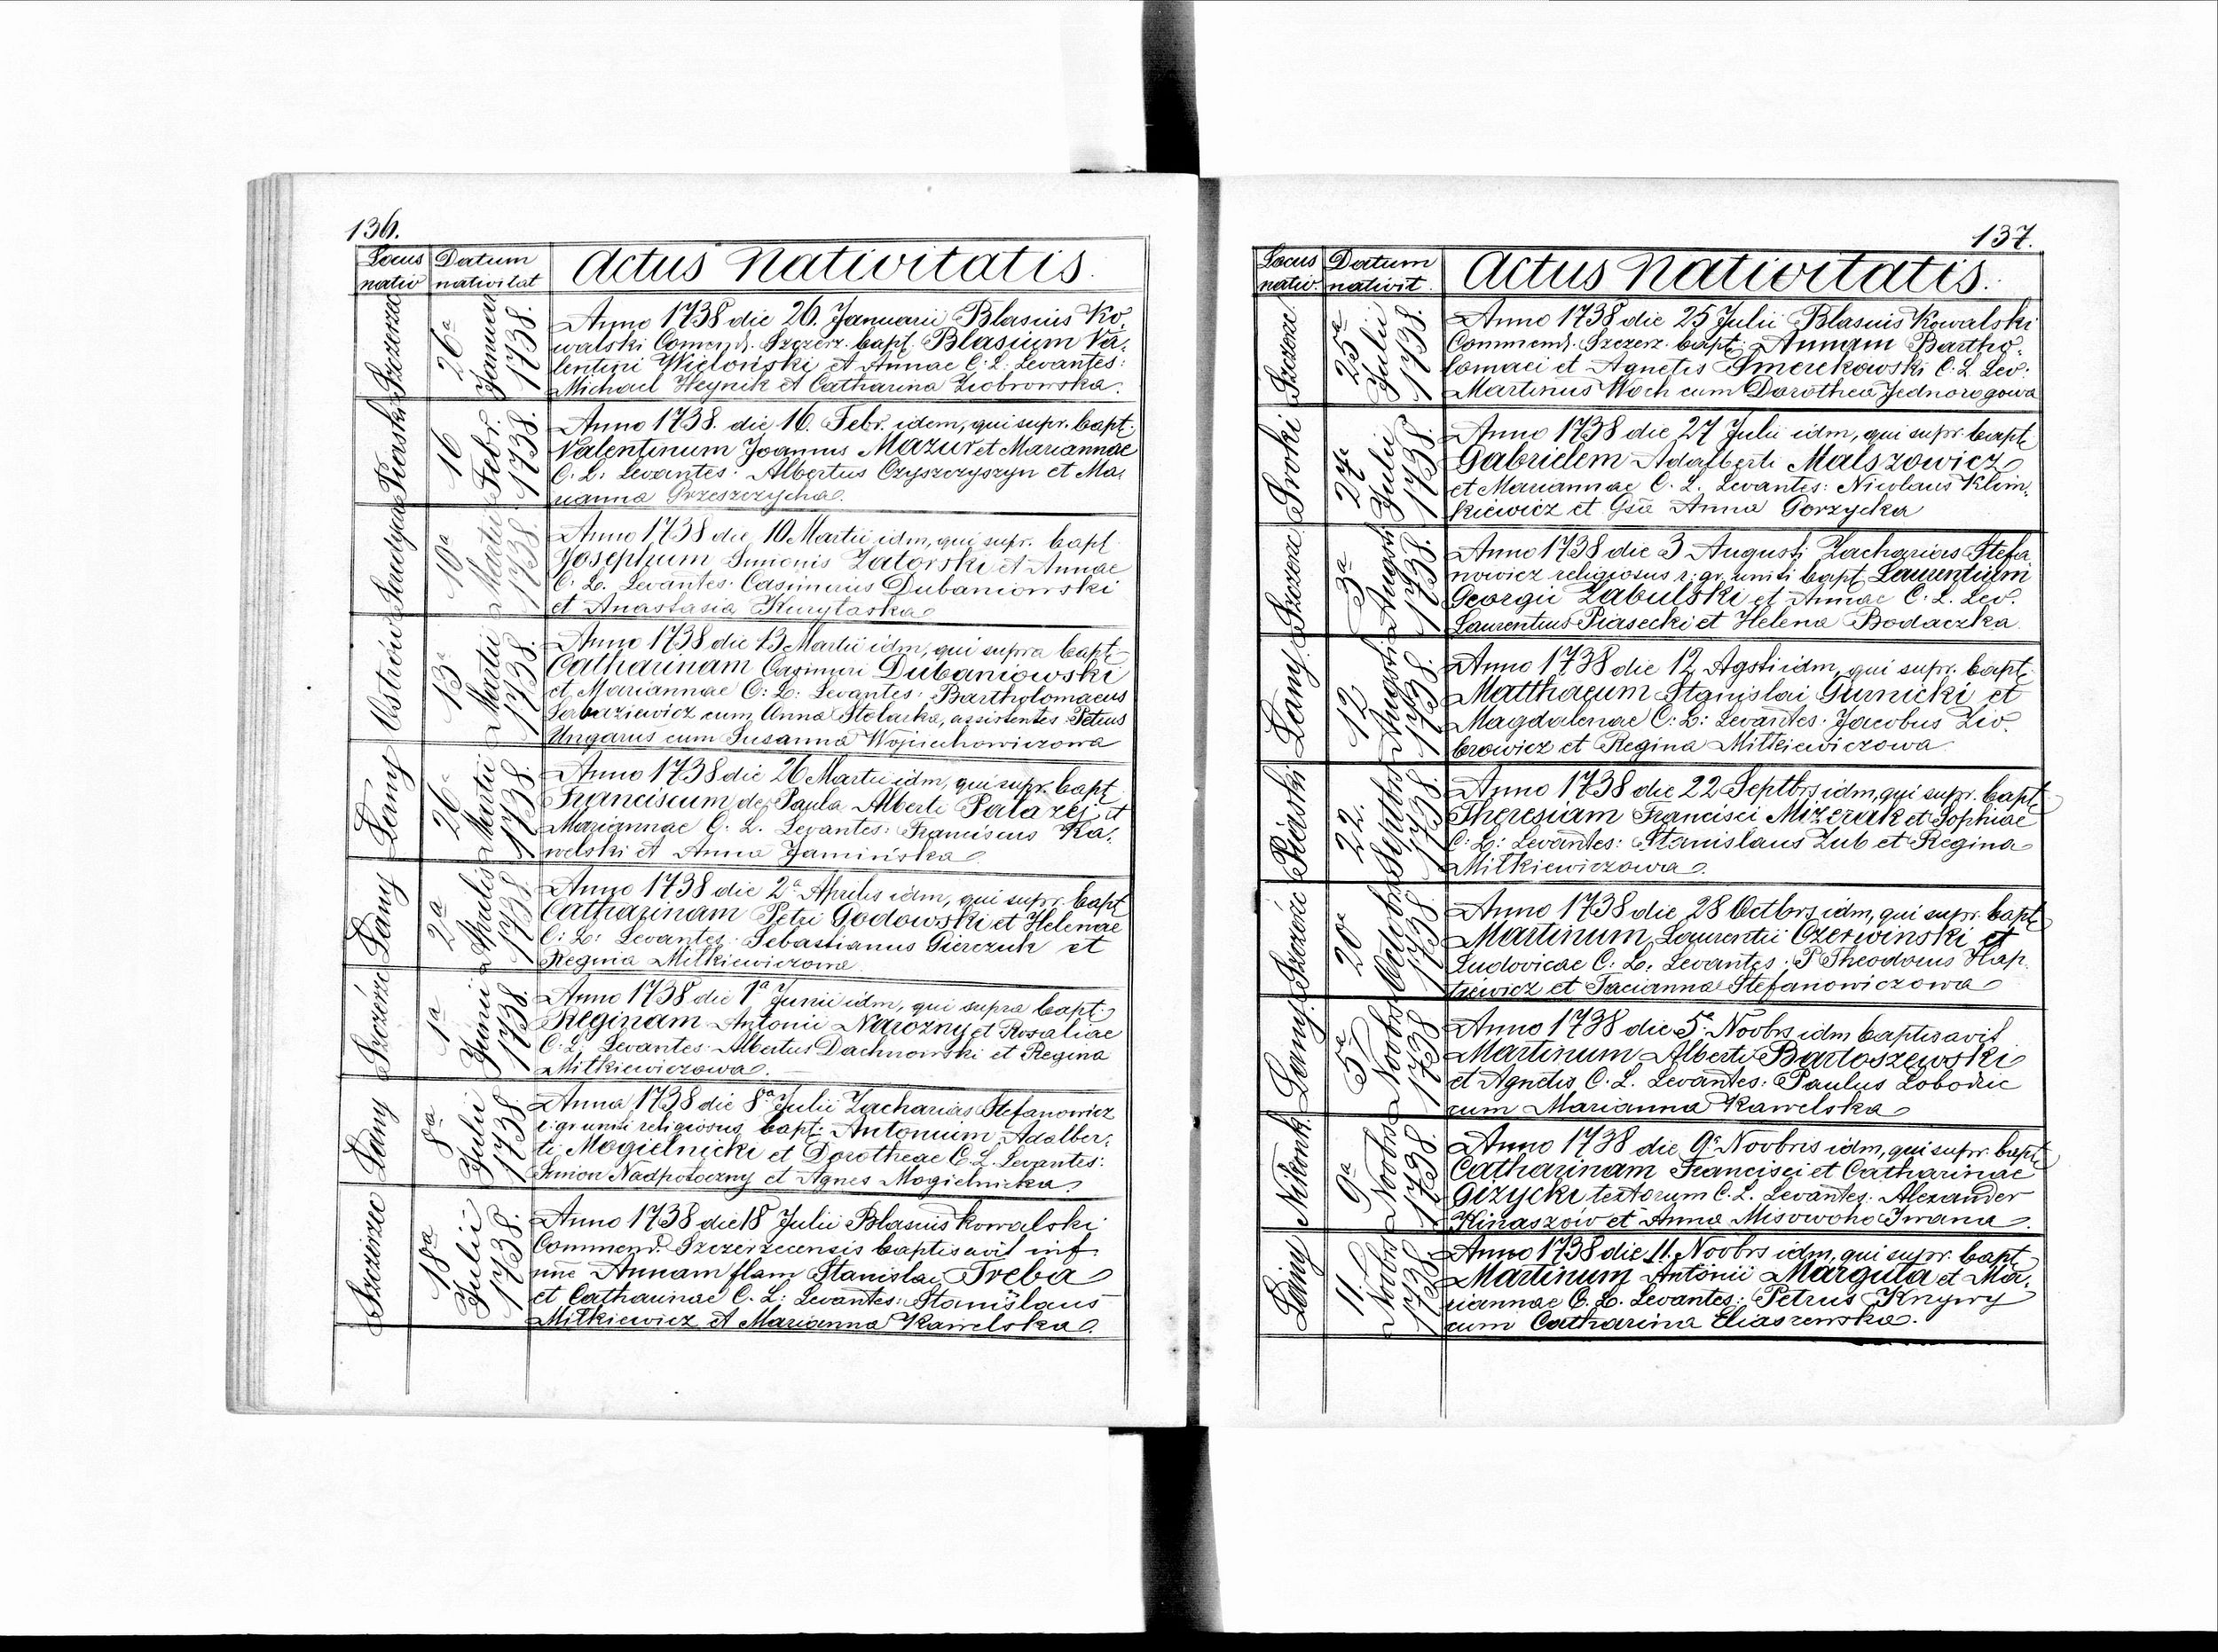 136.
Locus nativ
Datum nativitat
Actus Nativitatis.
Szczerzec
26a Januar 1738.
Anno 1738 die 26. Januarii Blasius Ko,
walski Comend. Szczerz. bapt. Blasium Va,
lentini Wieloński et Annae C. L. Levantes:
Michael Heynik et Catharina Ziobrowska.
Piarski
16 Febr. 1738.
Anno 1738. die 16. Febr. idem, qui supr. bapt.
Valentinum Joannus Mazur et Mariannae
C. L: Levantes: Albertus Czyszczyszyn et Ma,
rianna Grzeszczycha.
10a Martii 1738.
Anno 1738 die 10 Martii idm, qui supr. bapt
Josephum Simonis Zatorski et Annae
C. L. Levantes: Casimirus Dubaniowski
et Anastasia Kurylaska
Ostrów
13a Martii 1738.
Anno 1738 die 13 Martii idm, qui supra bapt
Catharinam Casimiri Dubaniowski
et Mariannae C: L: Levantes: Bartholomaeus
cum Anna Stolarka, assistentes Petrus
Ungarus cum Susanna Wojciechowiczowa
Łany
26a Martii 1738.
Anno 1738 die 26 Martii idm, qui supr. bapt
Franciscum de Paula Alberti Palazej et
Mariannae C. L. Levantes: Franciscus Ka,
welski et Anna Jamińska.
Łany
2a Aprilis 1738.
Anno 1738 die 2a Aprilis idm, qui supr. bapt
Catharinam Petri Godowski et Helenae
C: L: Levantes: Sebastianus Gierczuk et
Regina Mitkiewiczowa
Szczérzec
1a Junii 1738.
Anno 1738 die 1a Junii idm, qui supra bapt.
Reginam Antonii Narozny et Rosaliae
C. L. Levantes: Albertus Dachnowski et Regina
Mitkiewiczowa.
Łany
8a Julii 1738
Anna 1738 die 8a Julii Zacharias Stefanowicz
r. gr. uniti religiosus bapt: Antonium Adalber,
ti Mogielnicki et Dorotheae C. L. Levantes:
Simon Nadpotoczny et Agnes Mogielnicka.
Szczerzec
18a Julii 1738.
Anno 1738 die 18 Julii Blasius Kowalski
Commend. Szczerzecensis baptisavit inf.
nne Annam flam Stanislai Treba
et Catharinae C. L: Levantes: Stanislaus
Mitkiewicz et Marianna Kawelska.
137.
Locus nativ.
Datum nativit.
Actus Nativitatis.
Szczerze
25a Julii 1738.
Anno 1738 die 25 Julii Blasius Kowalski
Commend. Szczerz. bapt: Annam Bartho,
lomaei et Agnetis Smerekowski C. L. Lev:
Martinus Woch cum Dorothea Jednorogowa
Sroki
27a Julii 1738.
Anno 1738 die 27 Julii idm, qui supr bapt:
Gabrielem Adalberti Malszowicz
et Mariannae C. L. Levantes: Nicolaus Klim,
kiewicz et Gsa Anna Gorzycka
Szczerze
3a Augusti 1738.
Anno 1738 die 3 Augusti Zacharias Stefa
nowicz religiosus r. gr. uniti bapt Laurentium
Georgii Zabulski et Annae C. L. Lev.
Laurentius Piasecki et Helena Bodaczka
Łany.
12 Augusti 1738.
Anno 1738 die 12 Agsti idm, qui supr. bapt.
Matthaeum Stanislai Gurnicki et
Magdalenae C: L: Levantes: Jacobus Zio,
browicz et Regina Mitkiewiczowa
Piarski
22. Septbrs 1738.
Anno 1738 die 22 Septbrs idm, qui supr. bapt
Theresiam Francisci Mizerak et Sophiae
C: L: Levantes: Stanislaus Zub et Regina
Mitkiewiczowa.
Szczérzec
20a Octobrs 1738
Anno 1738 die 28 Octbrs idm, qui supr. bapt
Martinum Laurentii Czerwinski et
Ludovicae C: L: Levantes: P. Theodorus Hap,
kiewicz et Tacianna Stefanowiczowa
Łany.
5a Novbrs 1738
Anno 1738 die 5a Novbrs idm baptisavit
Martinum Alberti Bartoszewski
et Agnetis C. L. Levantes: Paulus Lobodzic
cum Marianna Kawelska
Nikonk.
9a Novbrs 1738.
Anno 1738 die 9a Novbris idm, qui supr. bapt
Catharinam Francisci et Catharinae
Gizycki textorum C. L. Levantes: Alexander
Kinaszów et Anna Misowoho Iwana.
Łany
11. Novbrs 1738
Anno 1738 die 11. Novbrs idm, qui supr. bapt
Martinum Antonii Marguta et Ma,
riannae C. L. Levantes: Petrus Knywy
cum Catharina Eliaszewska.